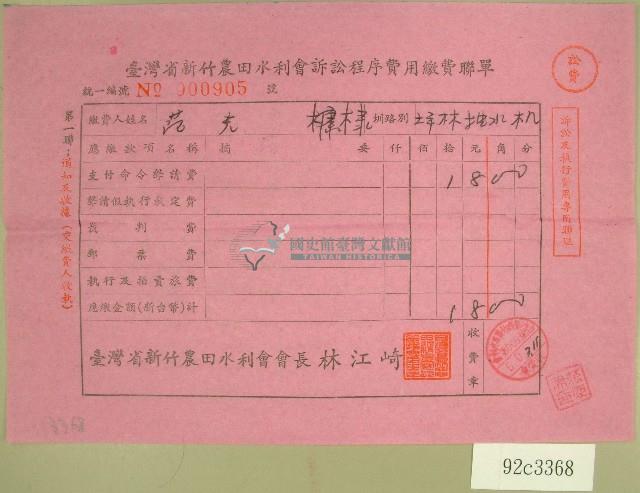 臺灣省新竹農田水利會訴訟程序費用繳費聯單
訟費
統一編號 No 000905 號
繳費人姓名 范光 圳路別 坪林抽水机
應繳款項名稱 摘要 仟 佰 拾 元 角 分
支付命令聲請費 1 8 0 0
聲請假執行裁定費
裁判費
郵票費
執行及拍賣旅費
應繳金額(新台幣)計 1 8 0 0
臺灣省新竹農田水利會會長 林江崎
收費章
第一聯：通知及收據(交繳費人收執)
訴訟及執行費用專用聯單
國史館臺灣文獻館
TAIWAN HISTORICA
3368
92c3368